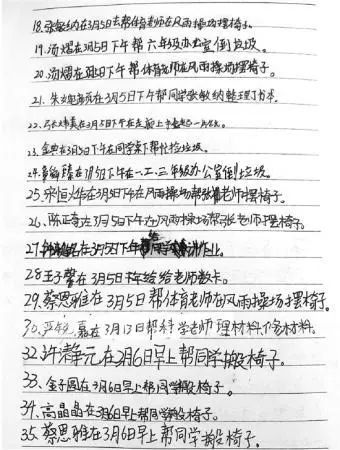 18.张敏纳在3月5日去帮体育老师在风雨操场摆椅子。
19、汤熠在3月5日下午帮六年级办公室倒垃圾。
20、汤熠在3月5日下午帮体育老师在风雨操场摆椅子。
21、朱 在3月5日下午帮同学张敏纳整理了书本。
22、 在3月5日下午在走廊上
23、金典在3月5日下午在同学桌下帮忙捡垃圾。
24. 臻在3月5日下午在一、二、三年级办公室倒垃圾。
25、宋恒烨在3月5日下午在风雨操场帮张老师摆椅子。
26、陈正奇在3月5日下午在风雨操场帮张老师摆椅子。
27、 在3月5日下午 作业。
28、王子馨在3月5日下午给 老师数卡。
29、蔡思雅在3月5日帮体育老师在风雨操场摆椅子。
30、严 嘉在3月13日帮科学老师理材料、 材料。
32、许瀞元在3月6日早上帮同学搬椅子。
33、金子圆在3月6日早上帮同学搬椅子。
34、高晶晶在3月6日早上帮同学搬椅子。
35、蔡思雅在3月6日早上帮同学搬椅子。